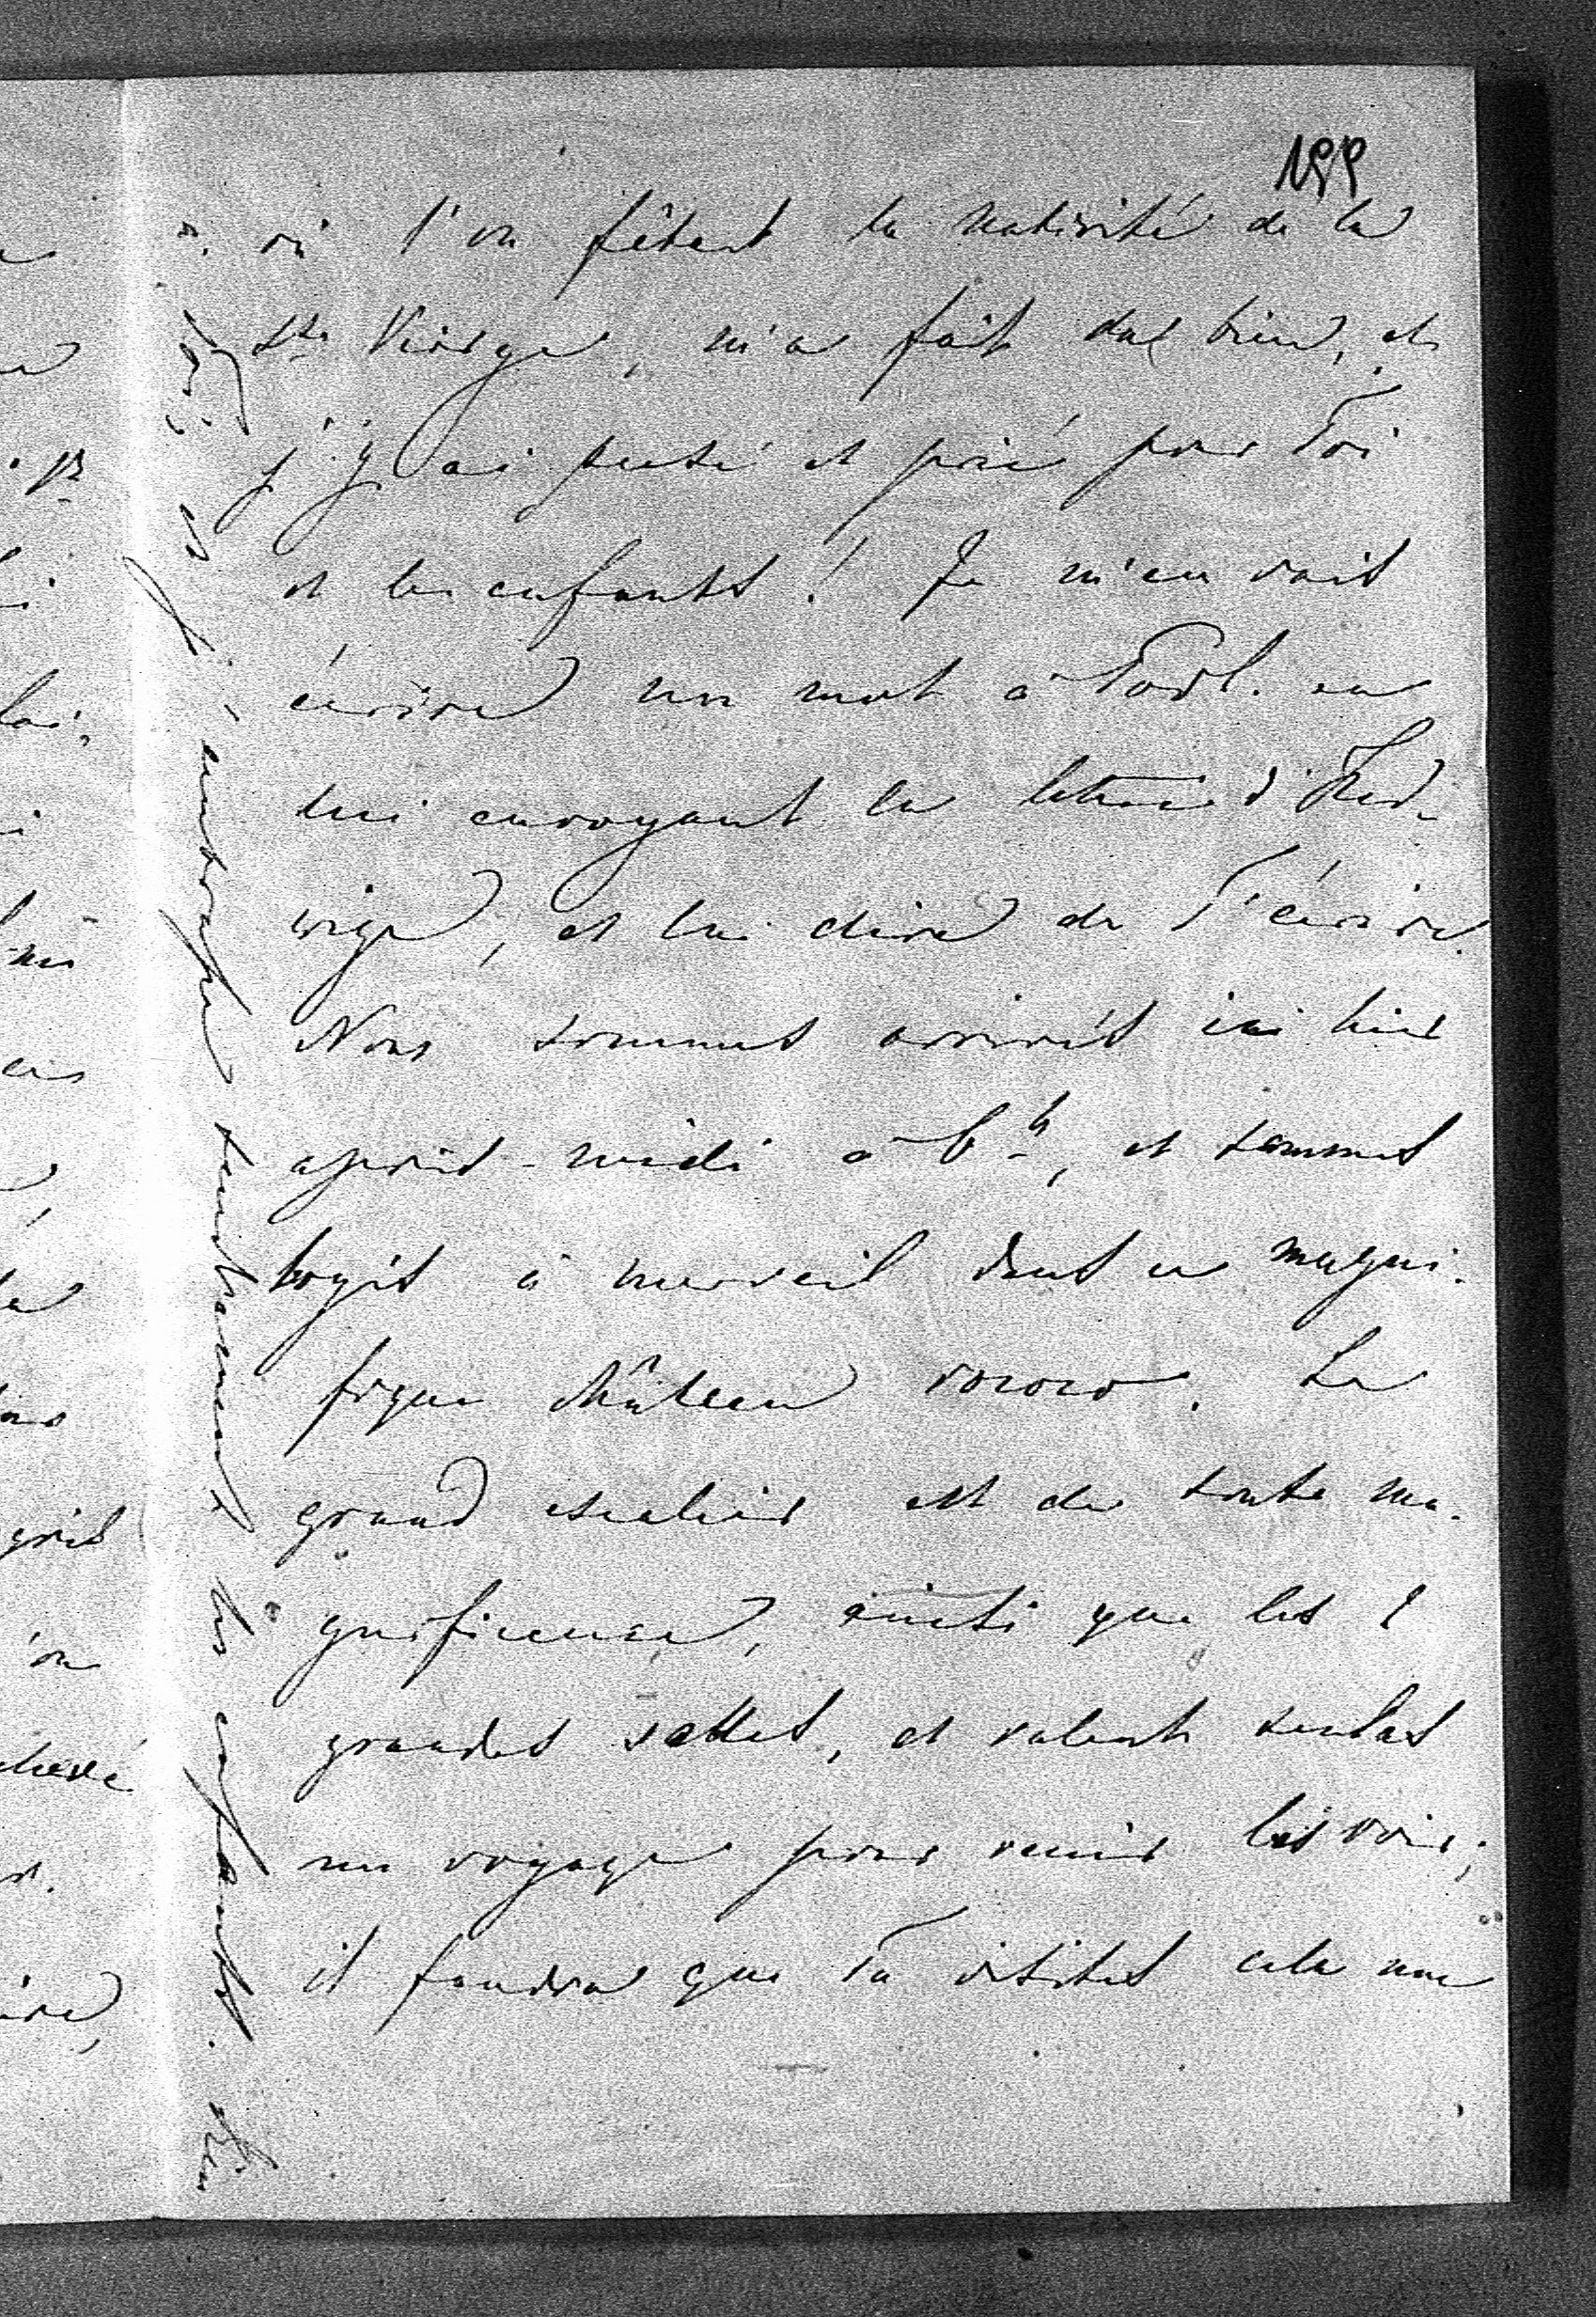 199
où l'on fêtent la nativité de la
Ste Vierge, m'a fait du bien, et
j'y ai pensé et prié pour Toi
et les enfants! Je m'en vais
écrire un mot à Podl. en
lui envoyant la lettre d'Hed-
wige, et lui dire de T'écrire.
Nous sommes arrivés ici hier
après-midi à 6 h, et sommes
logés à merveil dans ce magni-
fique château rococo. Le
grand escalier est de toute ma-
gnificence, ainsi que les 2
grandes salles, et valent seules
un voyage pour venir les voir;
il faudra que Tu visites cela une
fois; et j'embrasse tendrement les enfants. Ton